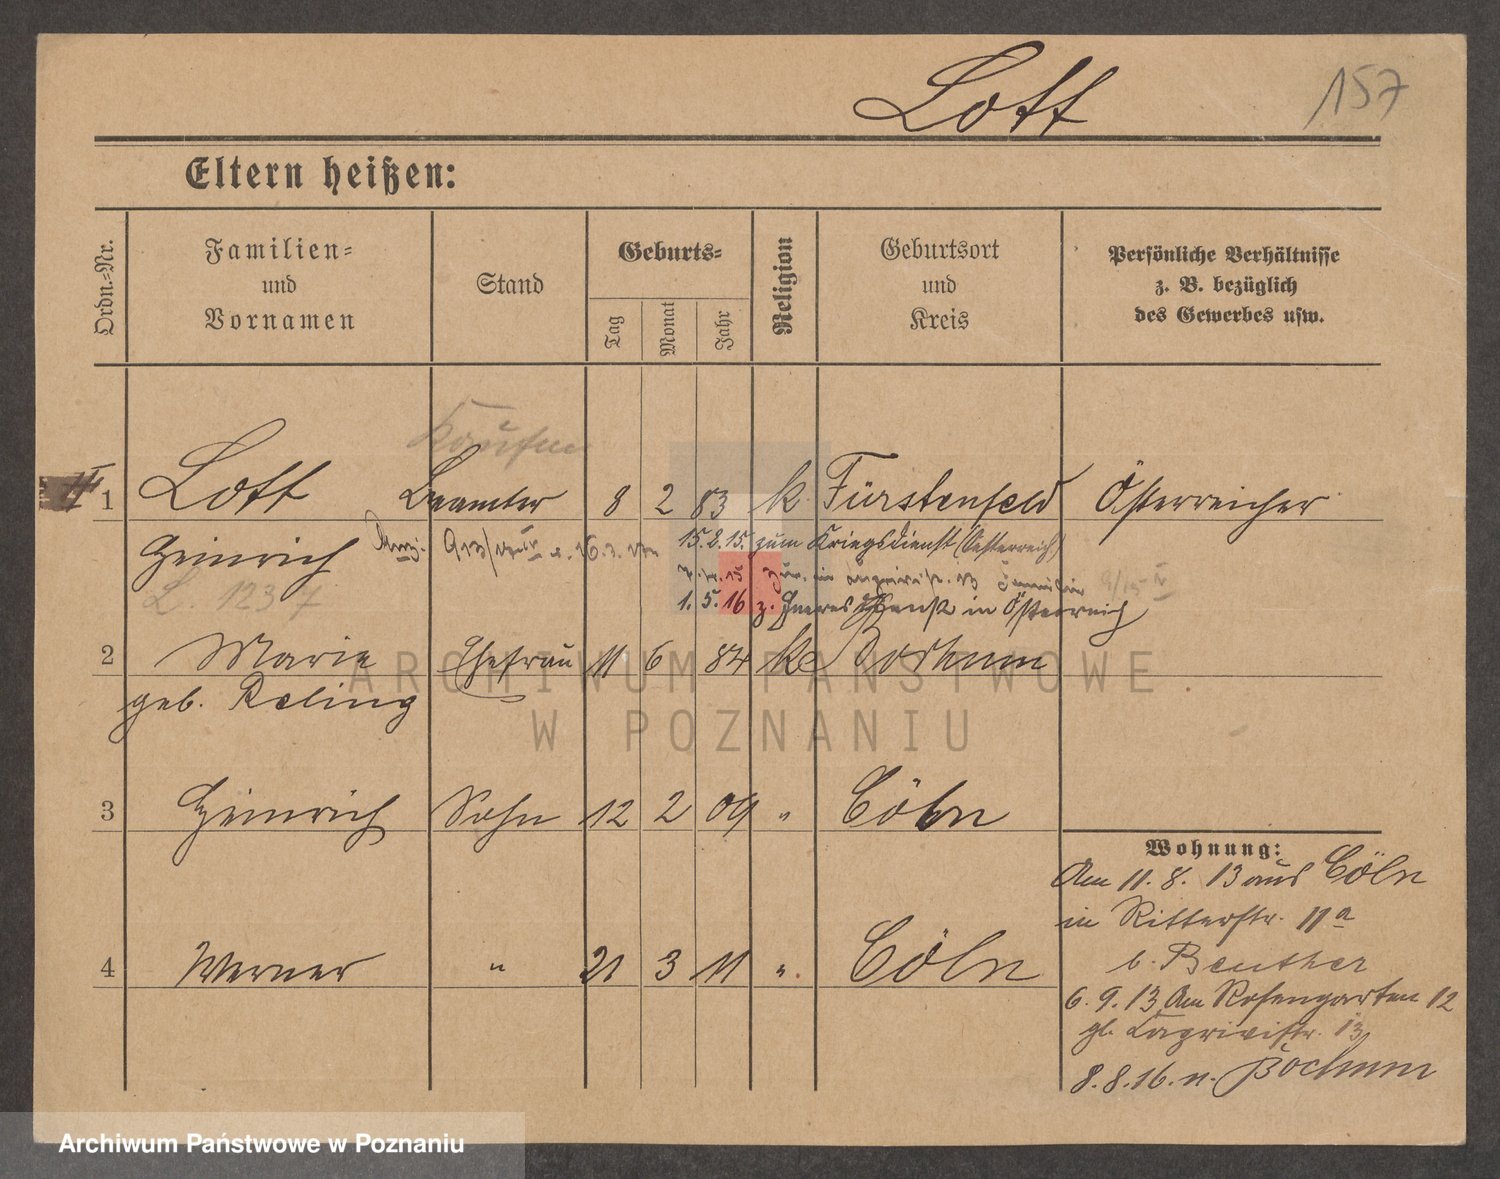 Lott
157
Eltern heißen:
Ordn.-Nr.
Familien- und Vornamen
Stand
Geburts-
Tag
Monat
Jahr
Religion
Geburtsort und Kreis
Persönliche Verhältnisse z. B. bezüglich des Gewerbes usw.
Kaufm
1 Lott Beamter 8 2 83 k Fürstenfeld Österreicher
Heinrich
15.2.15. zum Kriegsdienst (Oesterreich)
L. 1237
1. 5. 16 z. Heeresdienst in Österreich
2 Marie Ehefrau 11 6 84 k Bochum
geb. Reling
3 Heinrich Sohn 12 2 09 " Cöln
4 Werner " 21 3 11 " Cöln
Wohnung:
Am 11. 8. 13 aus Cöln
in Ritterstr. 11a
b. Beuther
6. 9. 13 Am Rosengarten 12
13
8. 8. 16. n. Bochum
ARCHIWUM PAŃSTWOWE
W POZNANIU
Archiwum Państwowe w Poznaniu